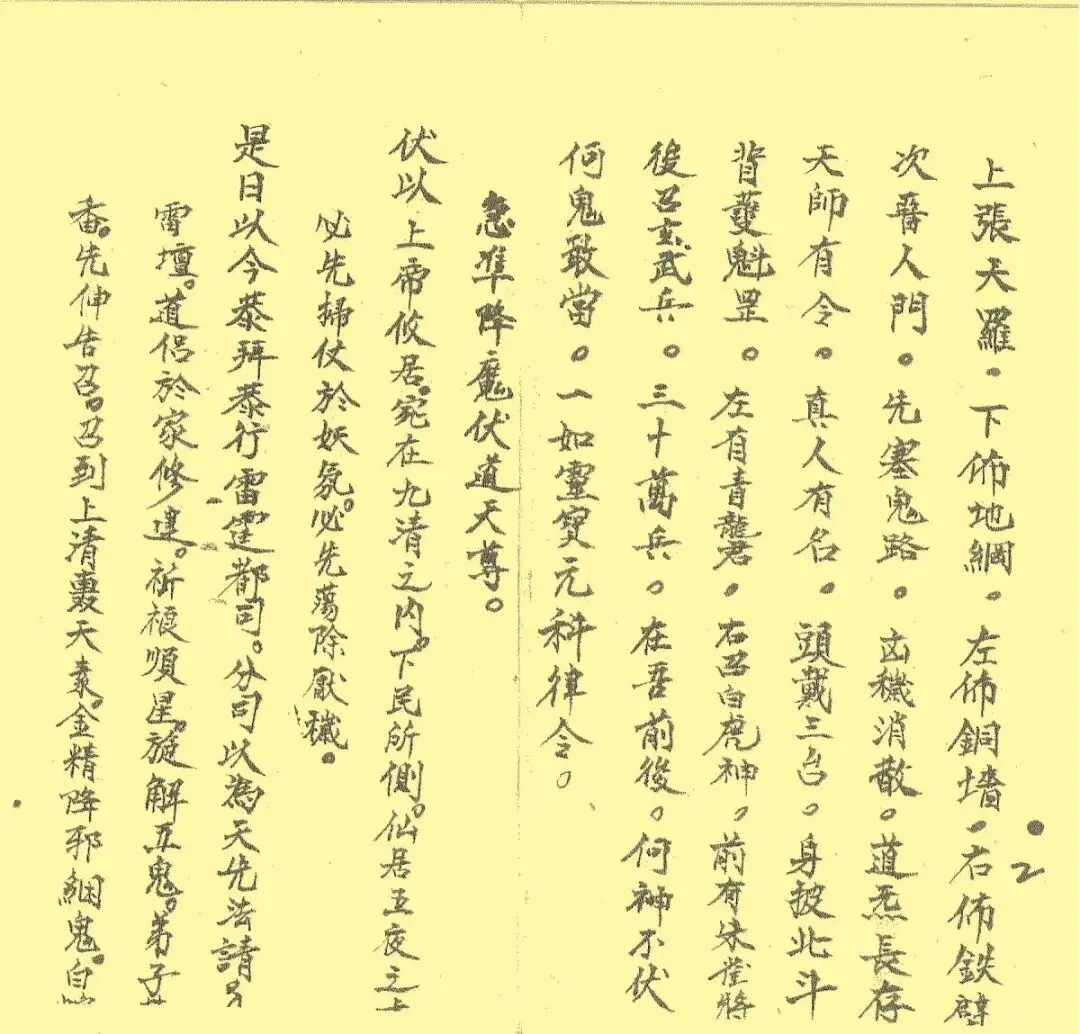 2
上張天羅。下佈地網。左佈銅墻。右佈鉄壁
次晉人門。先塞鬼路。凶穢消散。道炁長存
天師有令。真人有名。頭戴三台。身披北斗
背魁罡。左有青龍君。右召白虎神。前有朱雀將
後召玄武兵。三十萬兵。在吾前後。何神不伏
何鬼敢當。一如靈寶元科律令。
急準降魔伏道天尊。
伏以上帝攸居。宛在九清之内。下民所側。仙居五夜之上
必先掃伏於妖氛。必先蕩除厭穢。
是日以今恭拜恭行雷霆都司。分司以為天先法請。
雷壇。道侶於家修建。祈禳順星。旋解五鬼。弟子
香。先伸告召。召到上清天。金精降邪綑鬼。白